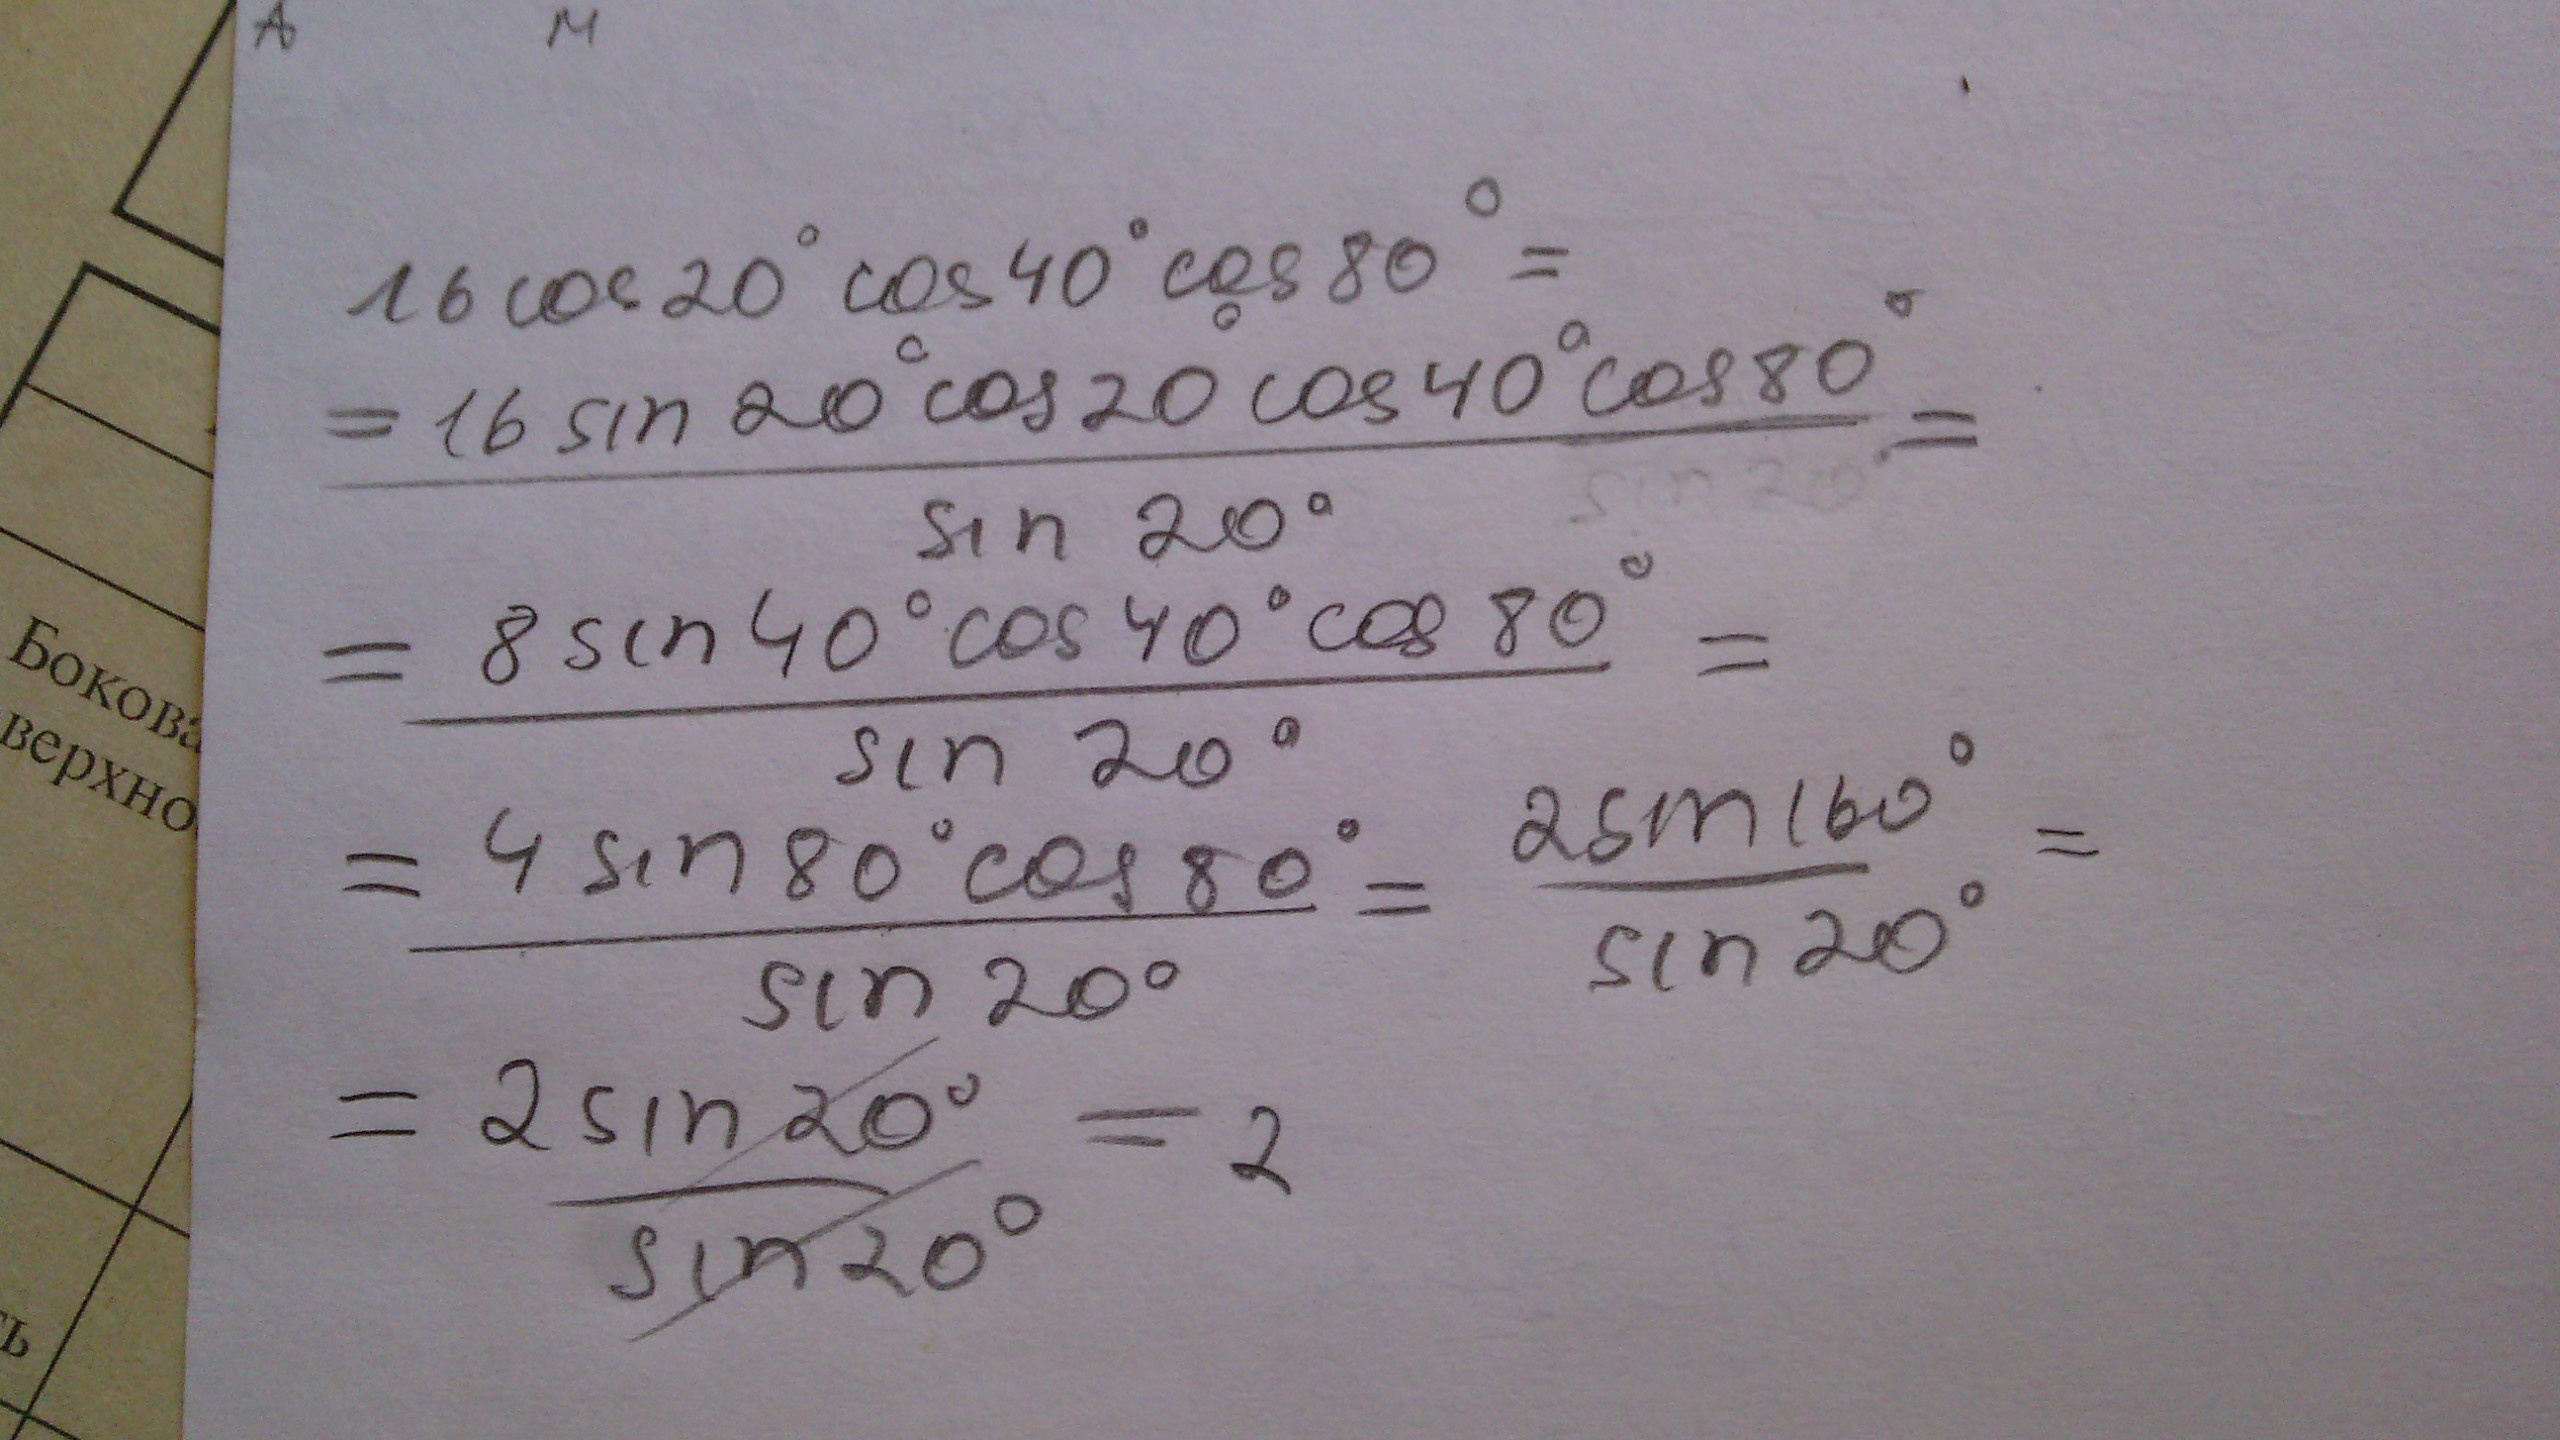 А М
16 cos 20° cos 40° cos 80° =
= 16 sin 20° cos 20° cos 40° cos 80° =
sin 20°
sin 20°
= 8 sin 40° cos 40° cos 80° =
sin 20°
= 4 sin 80° cos 80° = 2 sin 160° =
sin 20° sin 20°
= 2 sin 20° = 2
sin 20°
Бокова
верхно
ь